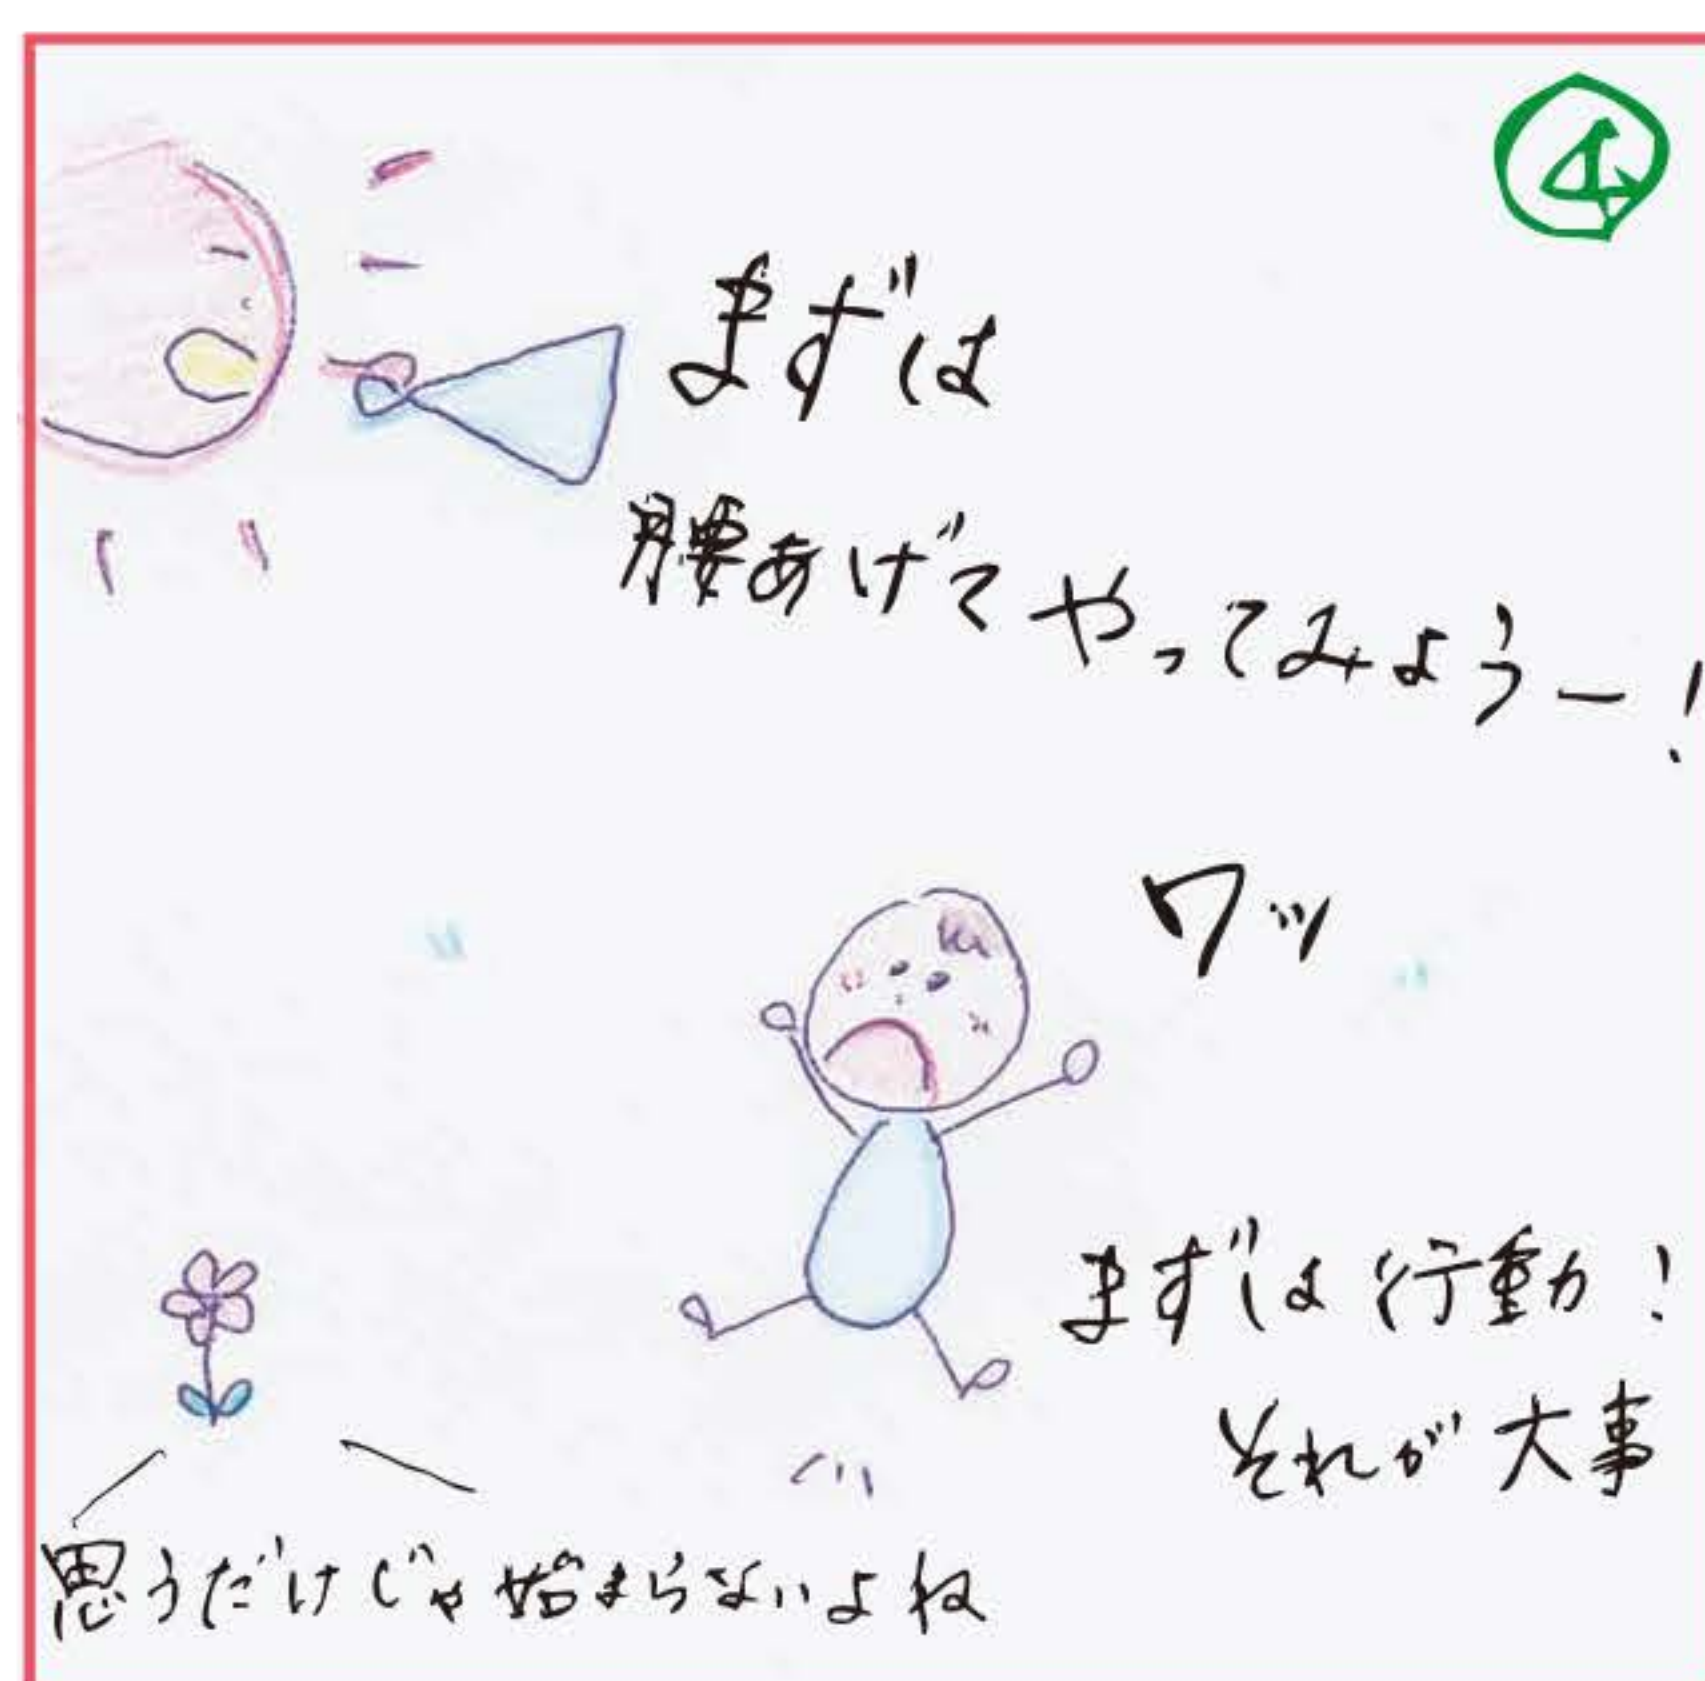 ④
まずは
腰あげてやってみようー！
ワッ
まずは行動！
それが大事
思うだけじゃ始まらないよね